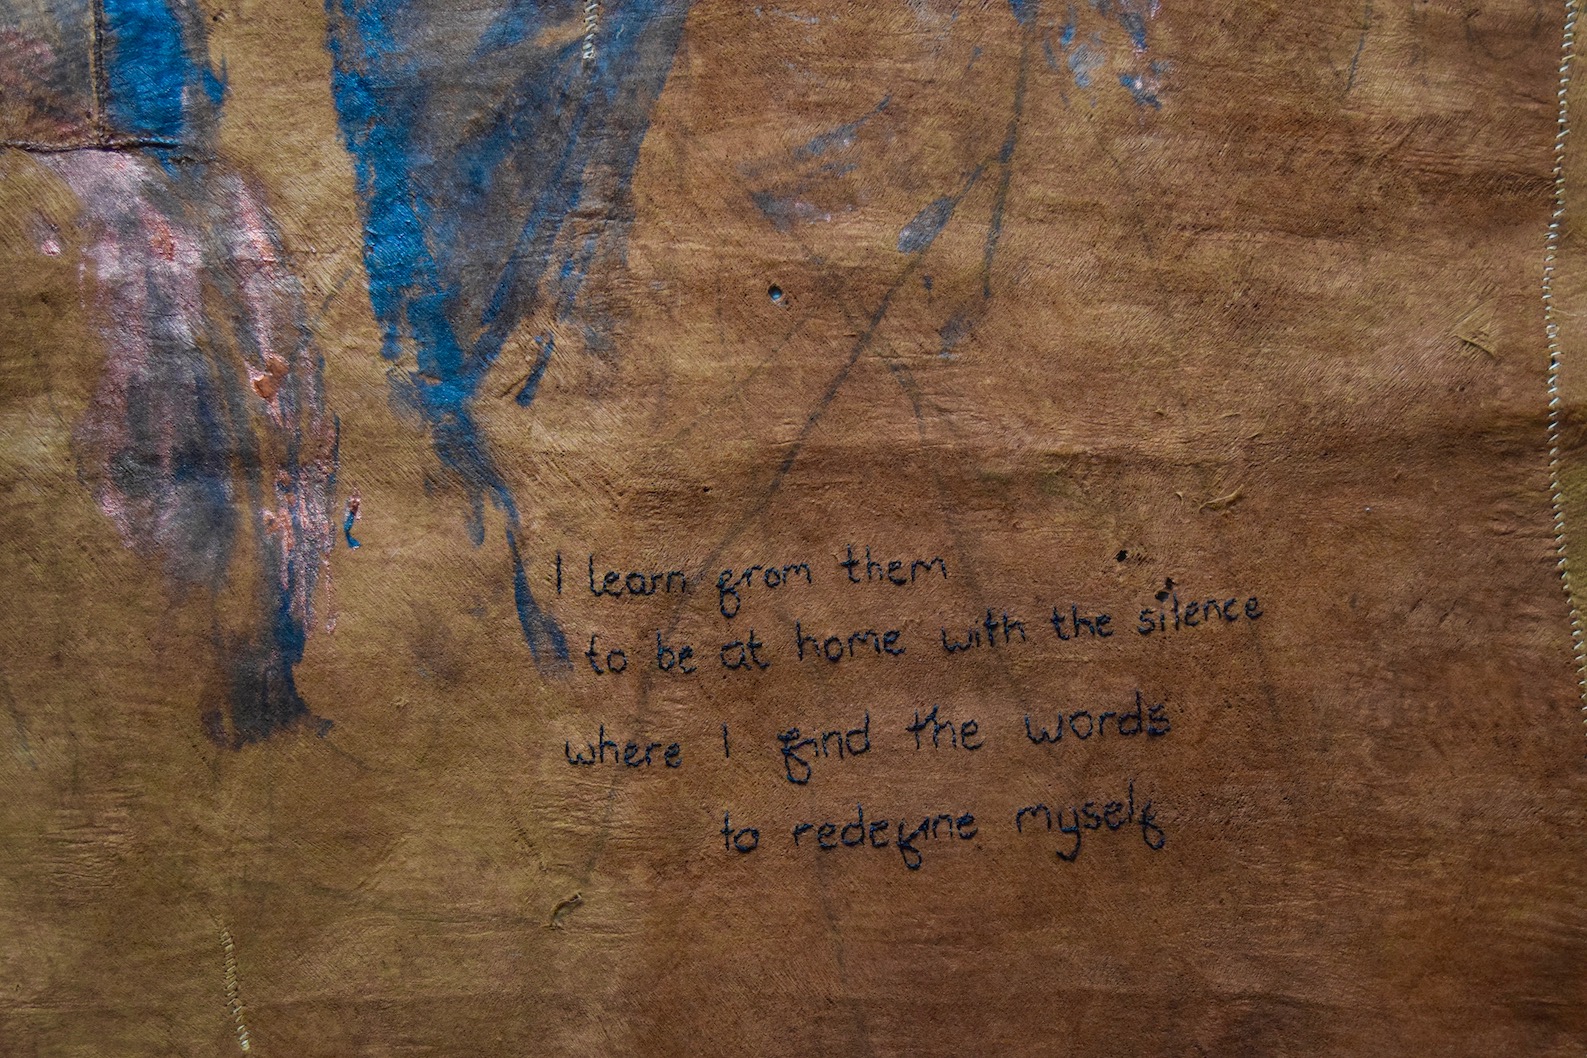 I learn from them
to be at home with the silence
where I find the words
to redefine myself